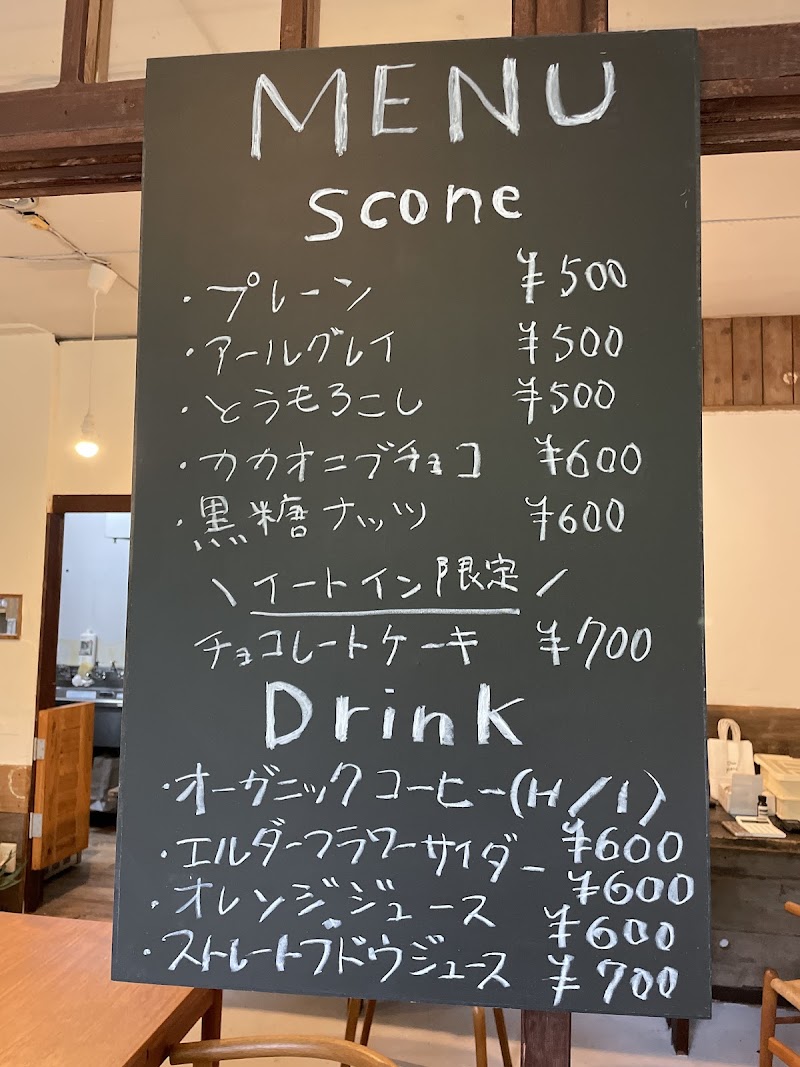 MENU
Scone
・プレーン ¥500
・アールグレイ ¥500
・とうもろこし ¥500
・カカオニブチョコ ¥600
・黒糖ナッツ ¥600
\イートイン限定/
チョコレートケーキ ¥700
Drink
・オーガニックコーヒー(H/I) ¥600
・エルダーフラワーサイダー ¥600
・オレンジジュース ¥600
・ストレートブドウジュース ¥700